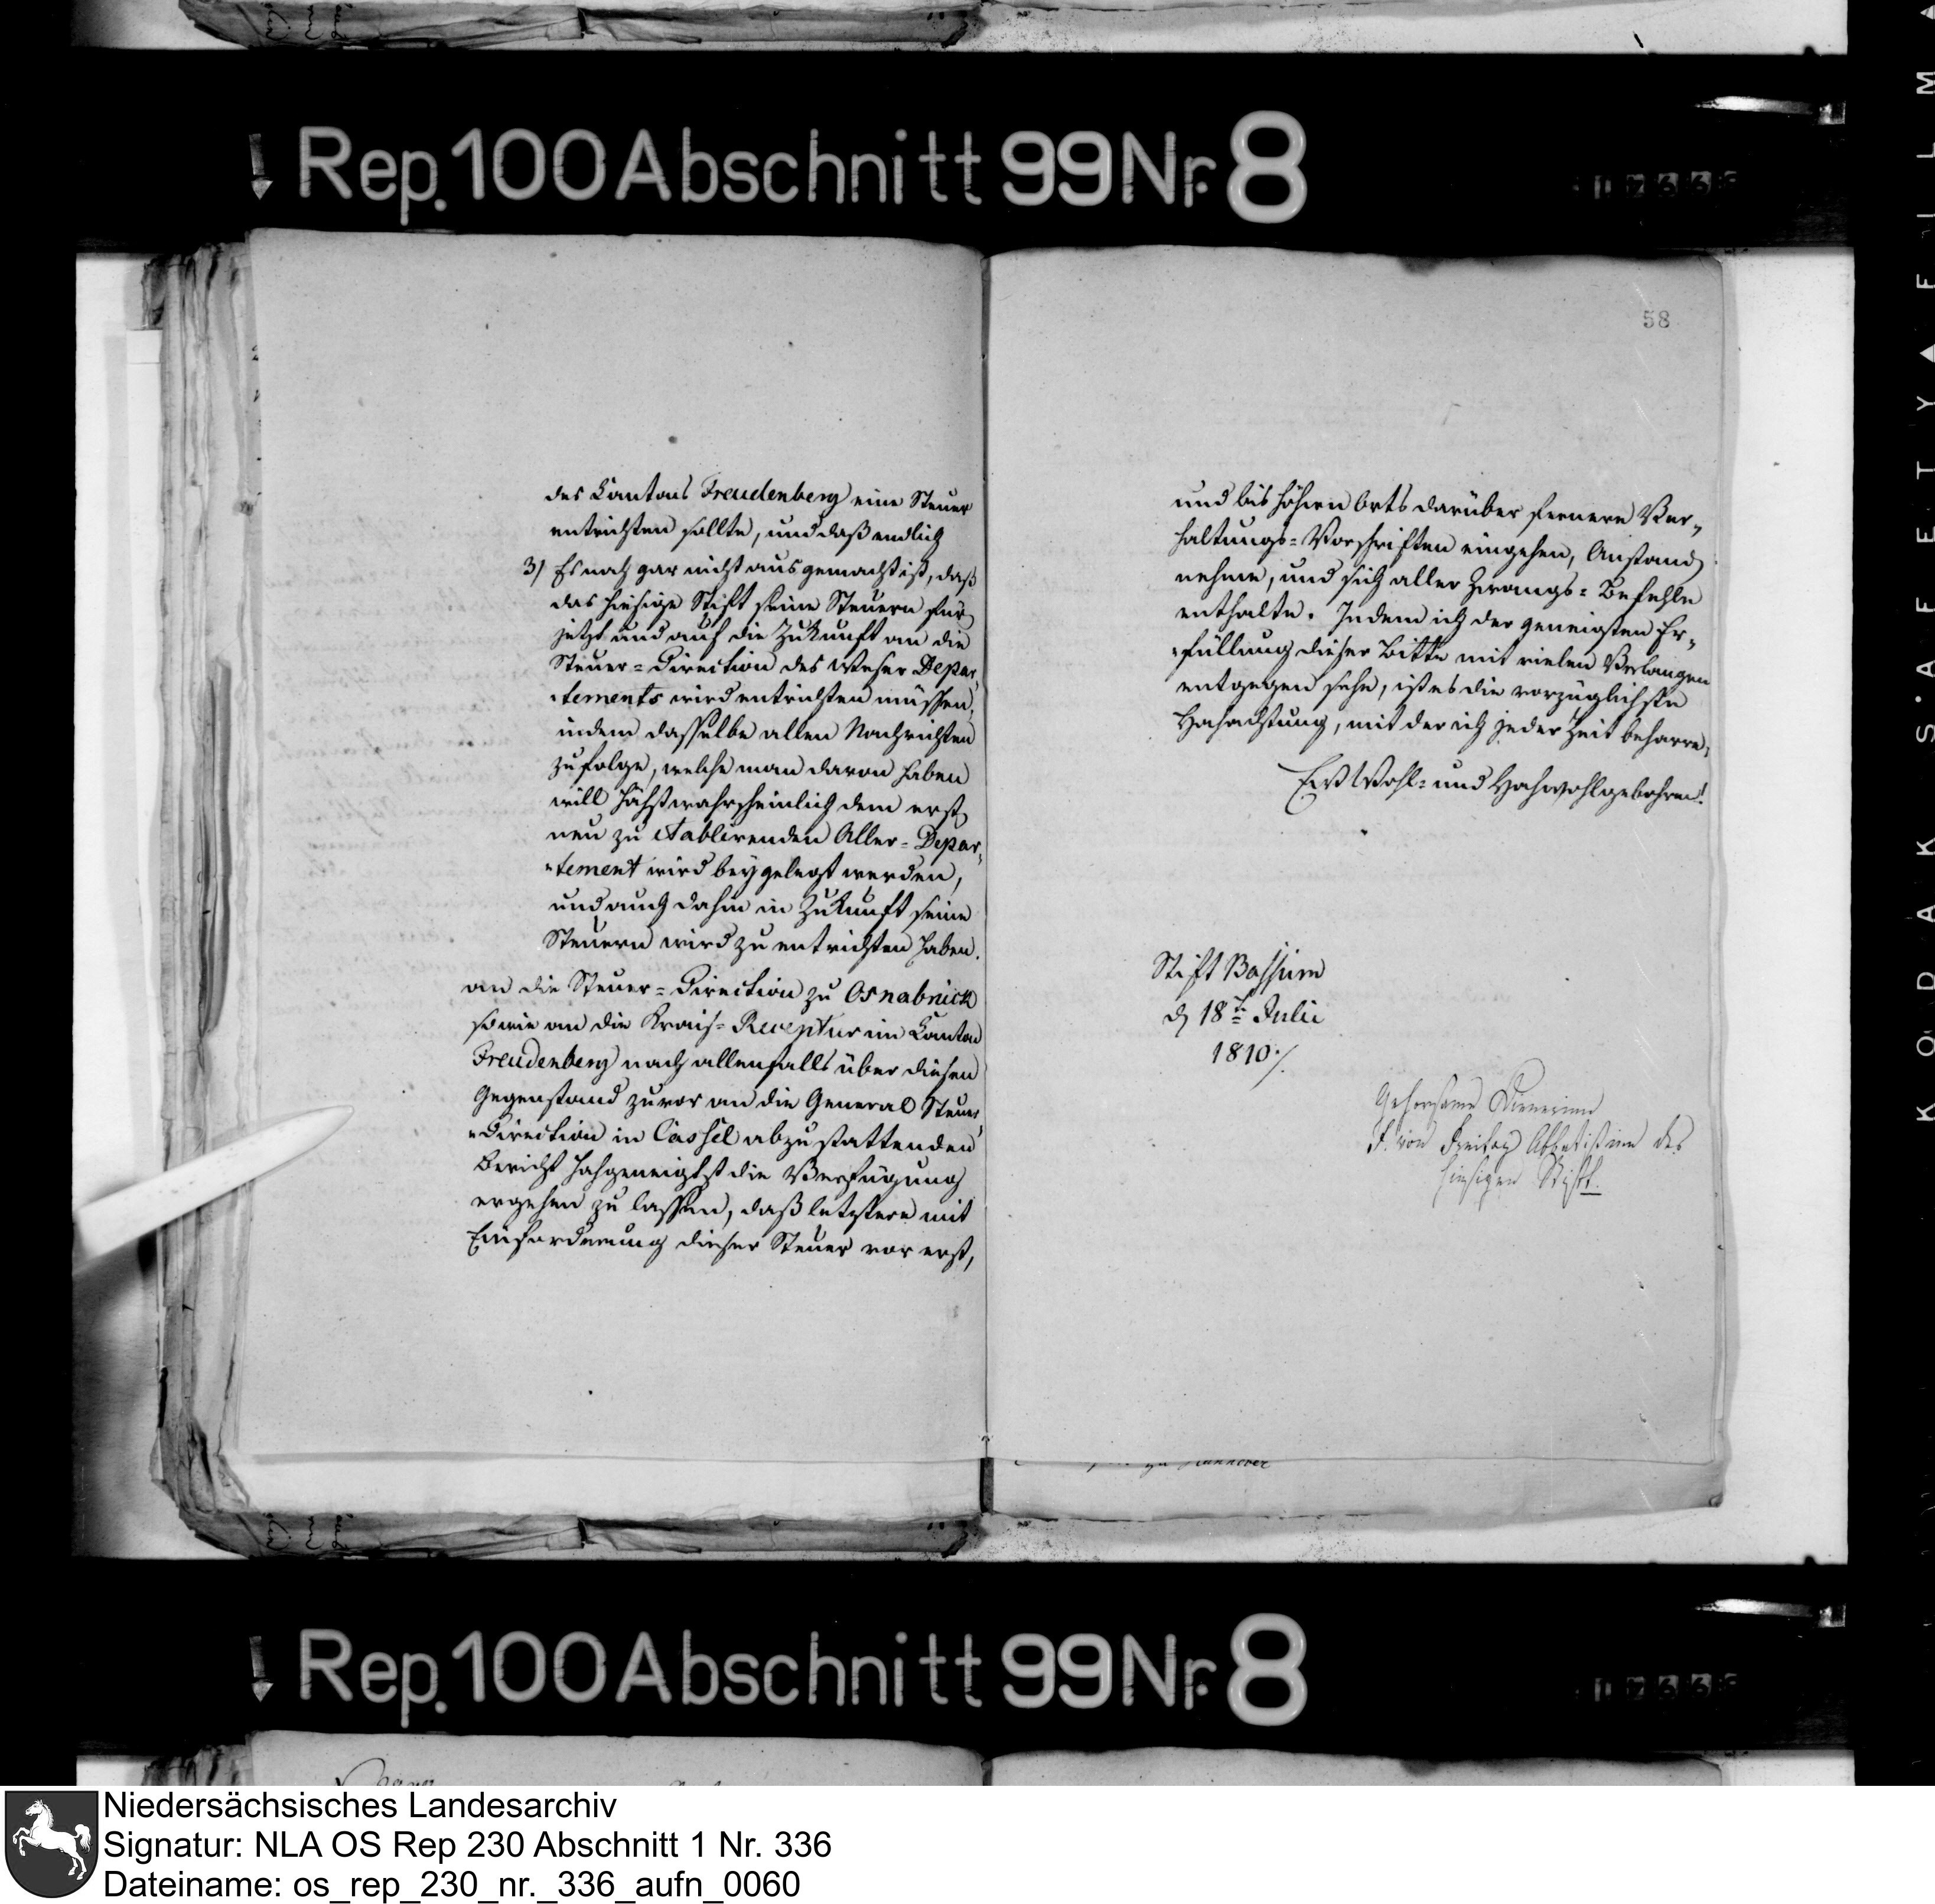 Rep. 100 Abschnitt 99 Nr. 8
58
des Cantons Freudenberg eine Steuer
entrichten sollte, und daß endlich
3) Es noch gar nicht ausgemacht ist, daß
das hiesige Stift seine Steuern für
jetzt und auf die Zukunft an die
Steuer-Direction des Weser Depar-
tements wird entrichten müssen,
indem dasselbe allen Nachrichten
zufolge, welche man davon haben
will höchstwahrscheinlich dem erst
neu zu etablirenden Aller-Depar-
tement wird beygelegt werden,
und auch dahin in Zukunft seine
Steuern wird zu entrichten haben.
an die Steuer-Direction zu Osnabrück
sowie an die Krais-Receptur im Canton
Freudenberg nach allenfalls über diesen
Gegenstand zuvor an die General Steuer
-Direction in Cassel abzustattenden
Bericht hochgeneigtst die Verfügung
ergehen zu lassen, daß letztere mit
Einforderung dieser Steuer vor erst,
und bis höhern Orts darüber fernere Ver-
haltungs-Vorschriften eingehen, Anstand
nehme, und sich aller Zwangs-Befehle
enthalte. Indem ich der geneigten Er-
füllung dieser Bitte mit vielen Verlangen
entgegen sehe, ist es die vorzüglichste
Hochachtung, mit der ich jeder Zeit beharre,
Ew Wohl- und Hochwohlgebohren!
Stift Bassum
d 18t Julii
1810./.
Gehorsame Dienerinn
F. von Freitag Abbatissinn des
hiesigen Stift.
zu Hannover
Rep. 100 Abschnitt 99 Nr. 8
KODAK SAFETY FILM
Niedersächsisches Landesarchiv
Signatur: NLA OS Rep 230 Abschnitt 1 Nr. 336
Dateiname: os_rep_230_nr._336_aufn_0060